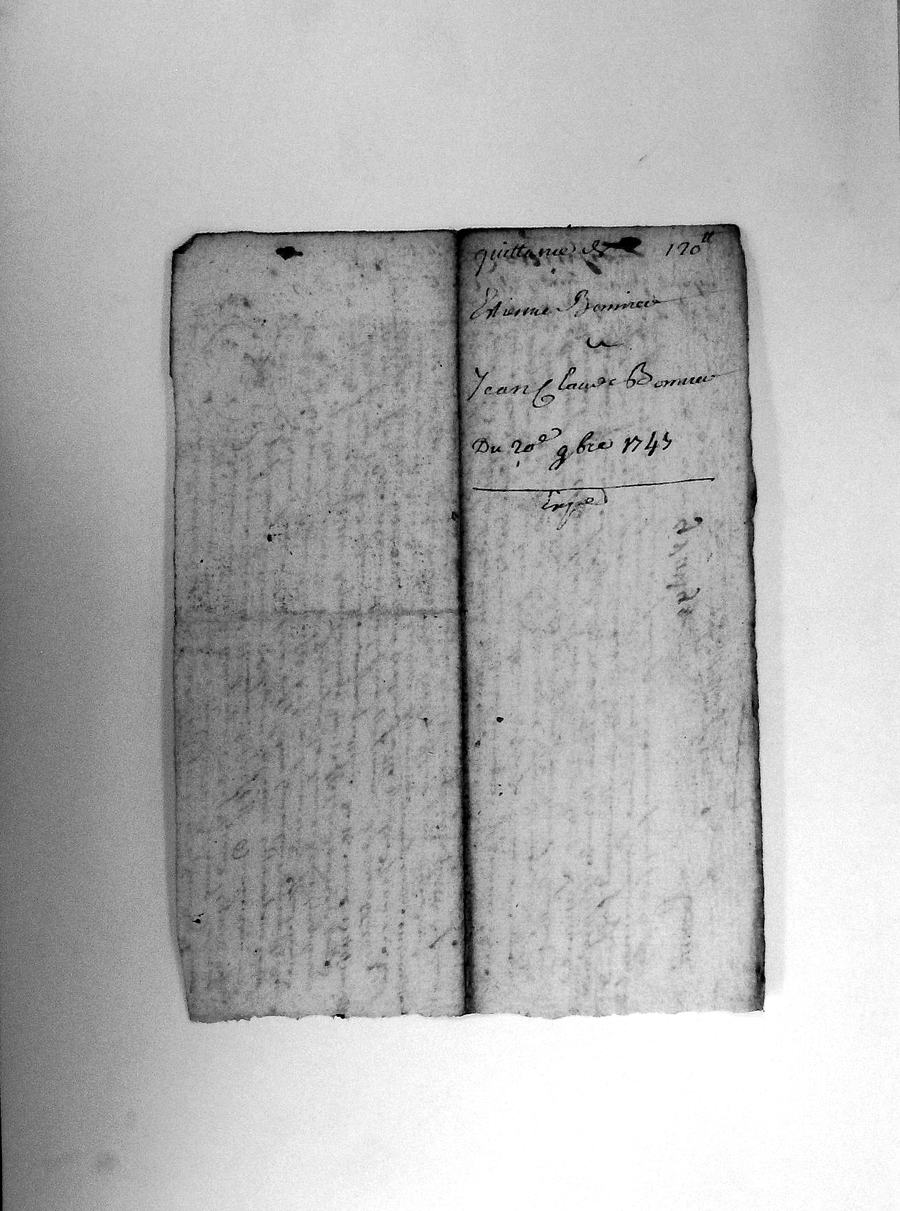 quittance de 120ᵗᵗ
Etienne Bonnieu
a
Jean Claude Bonnieu
Du 20ᵉ 9bre 1743
Exped